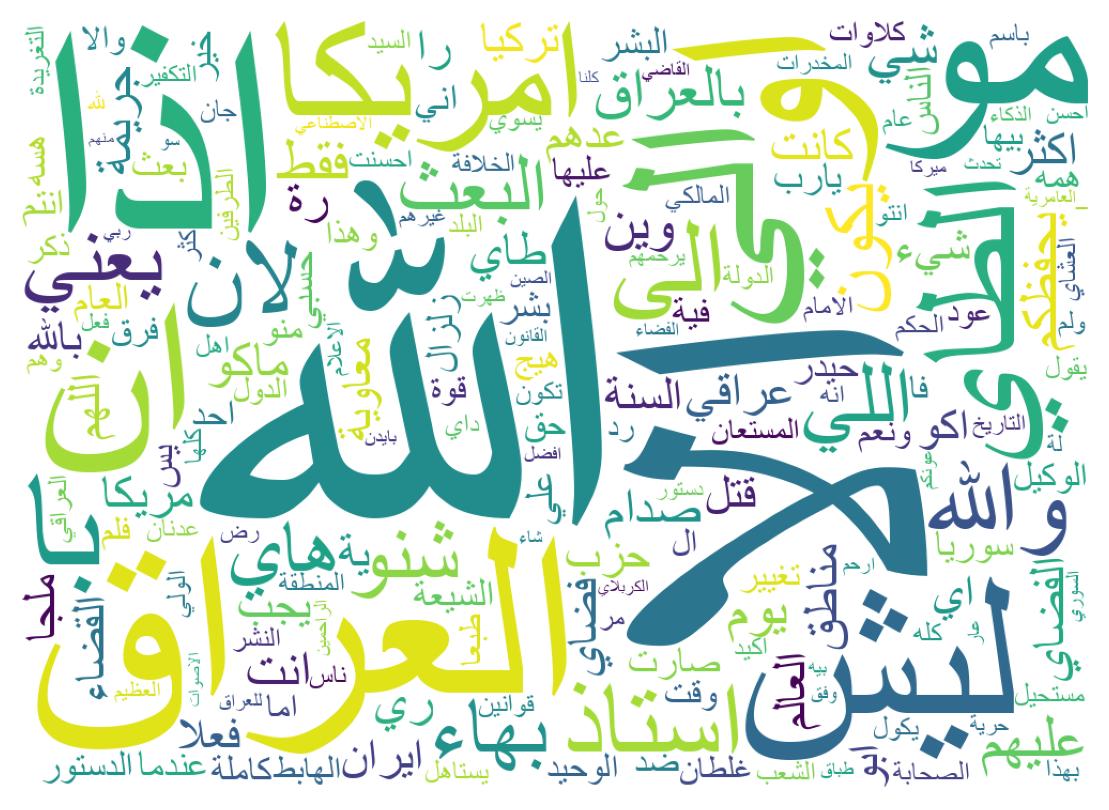 الله
العراق
لا
اذا
امريكا
ليش
مو
او
الي
الظي
ان
لله
يكون
استاذ
يا
الى
اللي
البعث
بالعراق
يعني
لان
شنو
هاي
بهاء
والله
عليهم
يحفظكم
شي
فقط
رة
را
اني
تركيا
البشر
كلاوات
باسم
السيد
والا
خير
التغريدة
التكفير
جريمة
جان
لله
منهم
سو
بعث
هسه
انتم
الطرفين
الاصطناعي
يسوي
كلنا
القاضي
المخدرات
الناس
عام
احسن
الذكاء
بيها
اكثر
تحدث
ميركا
همه
العامرية
كانت
يارب
عدهم
عليها
احسنت
الخلافة
غيرهم
البلد
حول
المالكي
انتو
شيء
وين
وهذا
طاي
ذكر
ربي
كثر
العام
فعل
فرق
بالله
وهم
حسبي
منو
اهل
ماكو
الدول
اللهم
احنا
كلها
بس
الاعلام
زلزال
ظهرت
الصين
بشر
القانون
هيج
تكون
معاوية
بايدن
قوة
داي
حق
افضل
علي
يرحمهم
الدولة
فية
الفضاء
الامام
عود
الحكم
العشاي
ولم
يقول
حيدر
انه
فا
السنة
عراقي
رد
المستعان
ونعم
اكو
التاريخ
لة
الوكيل
عونكم
قتل
دستور
صدام
ال
سوريا
العراقي
مريكا
عدنان
فلم
رض
شاء
ية
حزب
الشيعة
المنطقة
الولي
القضاء
ملجا
يجب
النشر
طبعا
الراحمين
انت
ناس
الاصوات
العظيم
للعراق
اما
فضاي
الكربلاي
مر
تغيير
مناطق
ارحم
يوم
اكيد
اي
كله
عار
الفضاي
السوري
صارت
العالم
بيه
وفق
وقت
مستحيل
حرية
يكول
قوانين
ري
فعلا
عندما
الدستور
كاملة
الهابط
ايران
يستاهل
الوحيد
ضد
غلطان
الشعب
طباق
ابو
الصحابة
بهذا